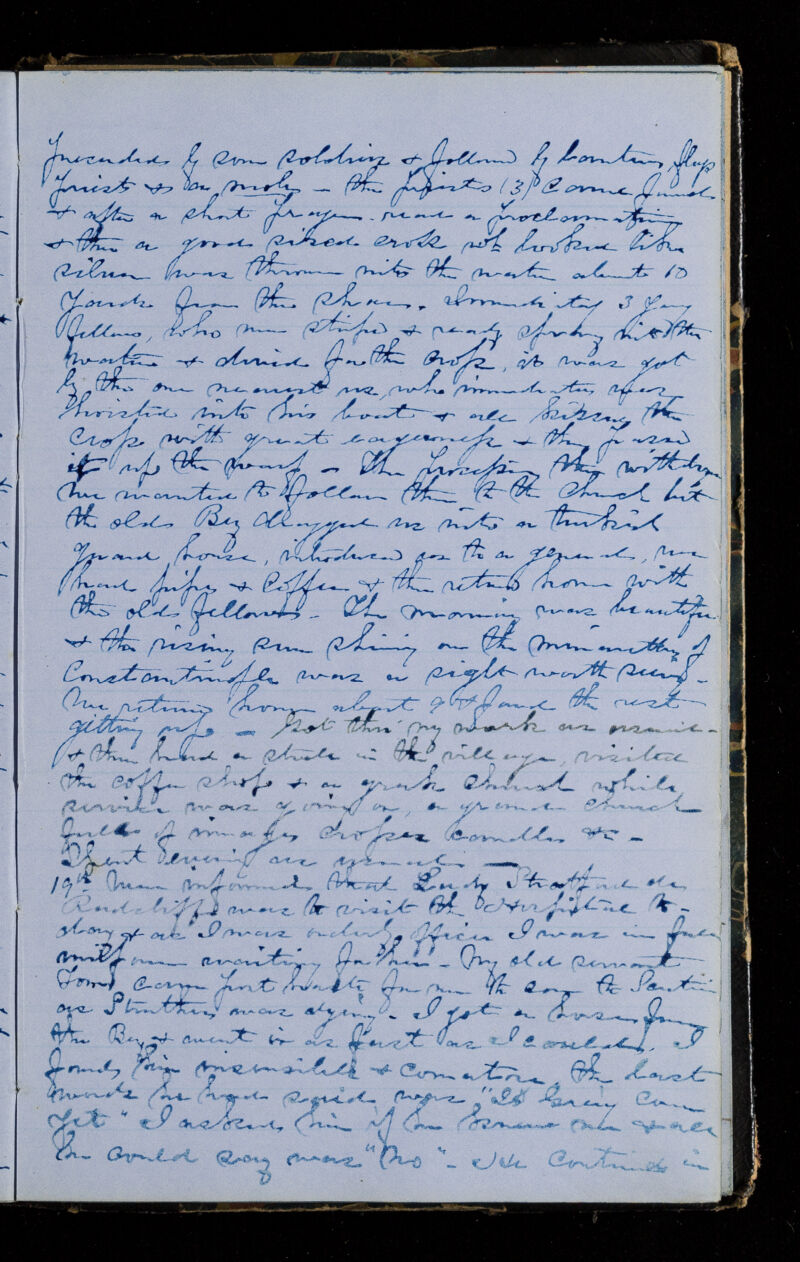 preceeded by some soldiers & followed by banters flags
priests & a mob - the priests (3) came
& after a short prayer read a proclamation
& then a good sized cross wh looked like
silver was thrown into the water about 10
yards from the shore. Immediately 3 young
fellows, who were striped & ready sprang into the
water & dived for the cross, it was got
by the one nearest us, who immediately was
hoisted into his boat & all kissed the
cross with great eagerness & they passed
it up the wharf - The procession then withdrew
we wanted to follow them to the church but
the old Bey dragged us into a Turkish
guard house, introduced us to a general, we
had pipes & coffee & then returned home with
the old fellow - The morning was beautiful
& the rising sun shining on the minaretts of
Constantinople was a sight worth seeing -
We returned home about 9 & found the rest
getting up - Got thro' my work as usual -
& then had a stroll in the village, visited
the coffee shop & a greek church while
service was going on, a grand church
full of images crosses candles &c -
Spent evening as usual -
19th Was informed that Lady Stratford de
Redcliffe was to visit the Hospital to-
day & as I was orderly officer I was in full
uniform waiting for her - My old servant
Tom came post haste for me to come to Scutari
as Struthers was dying - I got a horse from
the Bey & went in as fast as I could. I
found him insensible & comatose the last
words he had said was "Is Grey come
yet" I asked him if he knew me & all
he could say was "No" - He continued in